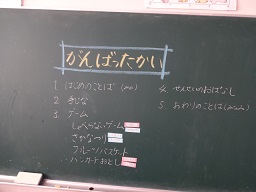 がんばったかい
1 はじめのことば
2 てじな
3 ゲーム
しゃべらないゲーム
さかなつり
フルーツバスケット
ハンカチおとし
4 せんせいのおはなし
5 おわりのことば